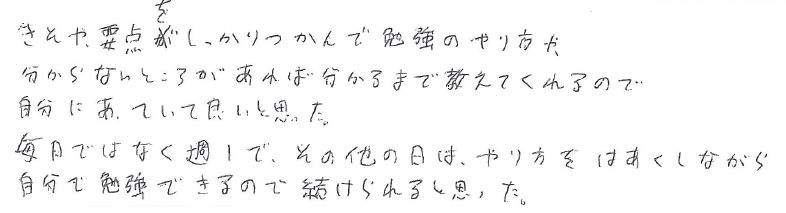 きそや、要点をしっかりつかんで勉強のやり方や、
分からないところがあれば分かるまで教えてくれるので
自分にあっていて良いと思った。
毎日ではなく週1で、その他の日は、やり方をはあくしながら
自分で勉強できるので続けられると思った。